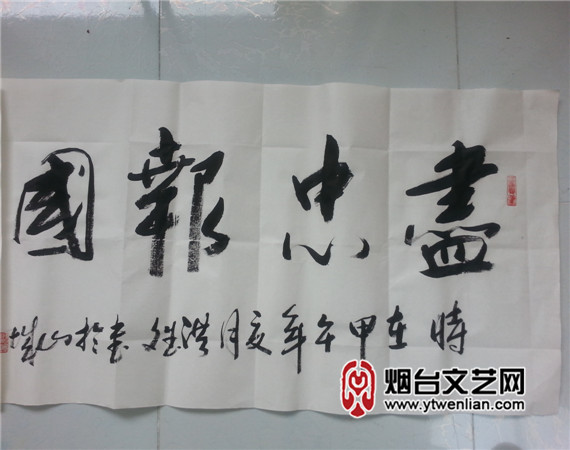 盡忠報國
時在甲午年夏月洪
书於
烟台文艺网
www.ytwenlian.com